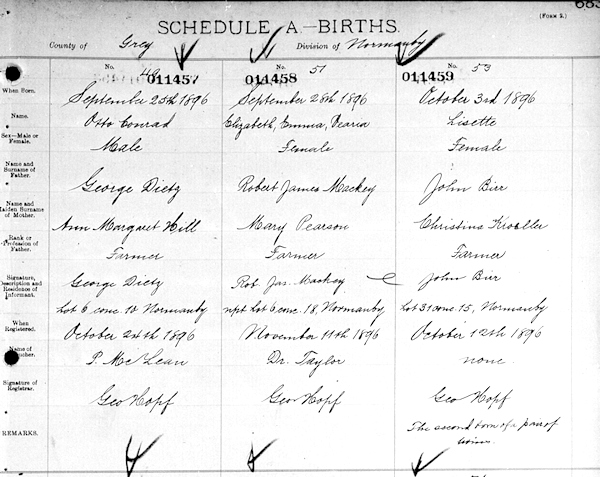 663
(FORM 2.)
SCHEDULE A.—BIRTHS.
County of Grey Division of Normanby
No. 49 No. 51 No. 53
011457 011458 011459
When Born. September 25th 1896 September 28th 1896 October 3rd 1896
Name. Otto Conrad Elizabeth, Emma, Pearia Lisette
Sex—Male or Female. Male Female Female
Name and Surname of Father. George Dietz Robert James Mackey John Birr
Name and Maiden Surname of Mother. Ann Margaret Hill Mary Pearson Christina Kroller
Rank or Profession of Father. Farmer Farmer Farmer
Signature, Description and Residence of Informant. George Dietz Rob. Jas. Mackey John Birr
Lot 6 conc. 10 Normanby npt Lot 6 conc. 18, Normanby Lot 31 conc. 15, Normanby
When Registered. October 24th 1896 November 11th 1896 October 12th 1896
Name of Accoucher. P. McLean Dr. Taylor none
Signature of Registrar. Geo Hopf Geo Hopf Geo Hopf
REMARKS. The second born of a pair of
twins.